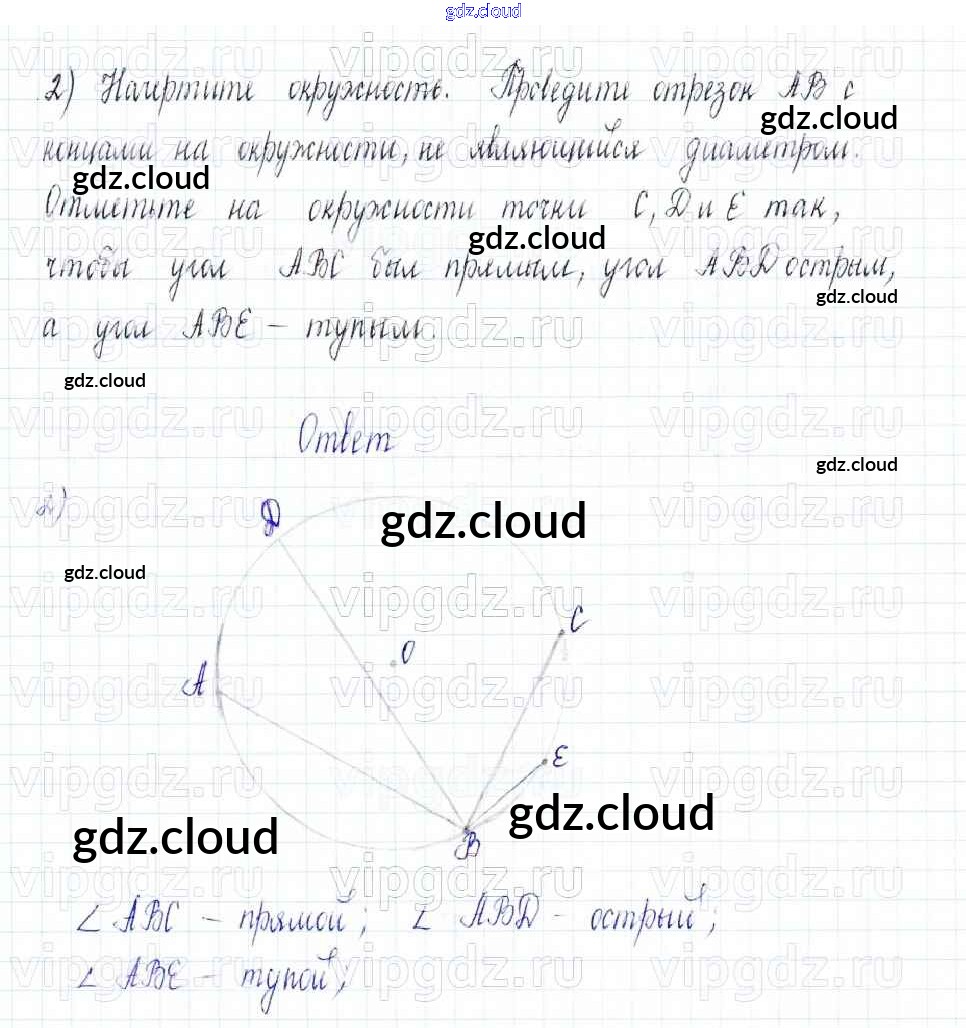 gdz.cloud
2) Начертите окружность. Проведите отрезок AB с
gdz.cloud
концами на окружности, не являющийся диаметром.
gdz.cloud
Отметьте на окружности точки C, D и E так,
gdz.cloud
чтобы угол ABC был прямым, угол ABD острым,
gdz.cloud
а угол ABE – тупым.
gdz.cloud
Ответ
gdz.cloud
2)
D
gdz.cloud
gdz.cloud
C
O
A
E
gdz.cloud
gdz.cloud
B
∠ ABC – прямой; ∠ ABD – острый;
∠ ABE – тупой;
vipgdz.ru